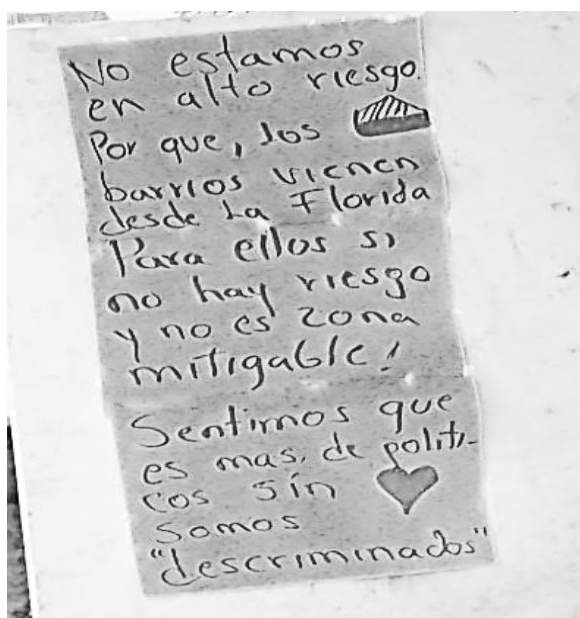 No estamos
en alto riesgo.
Por que, los
barrios vienen
desde La Florida
Para ellos si
no hay riesgo
y no es zona
mitigable!
Sentimos que
es mas. de politi-
cos sin
somos
"descriminados"